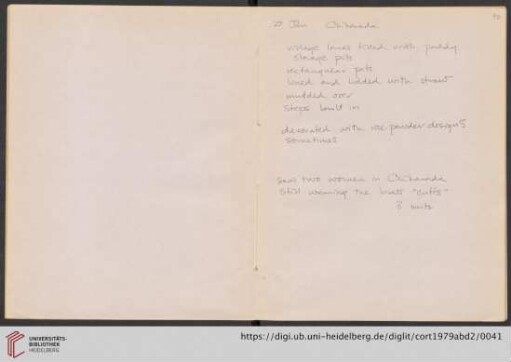 20 Jan Chikanada
village lanes lined with paddy
storage pits
rectangular pits
lined and lidded with straw
mudded over
steps built in
decorated with rice powder designs
sometimes
saw two women in Chikanada
still wearing the brass "cuffs"
UNIVERSITÄTS-
BIBLIOTHEK
HEIDELBERG
https://digi.ub.uni-heidelberg.de/diglit/cort1979abd2/0041